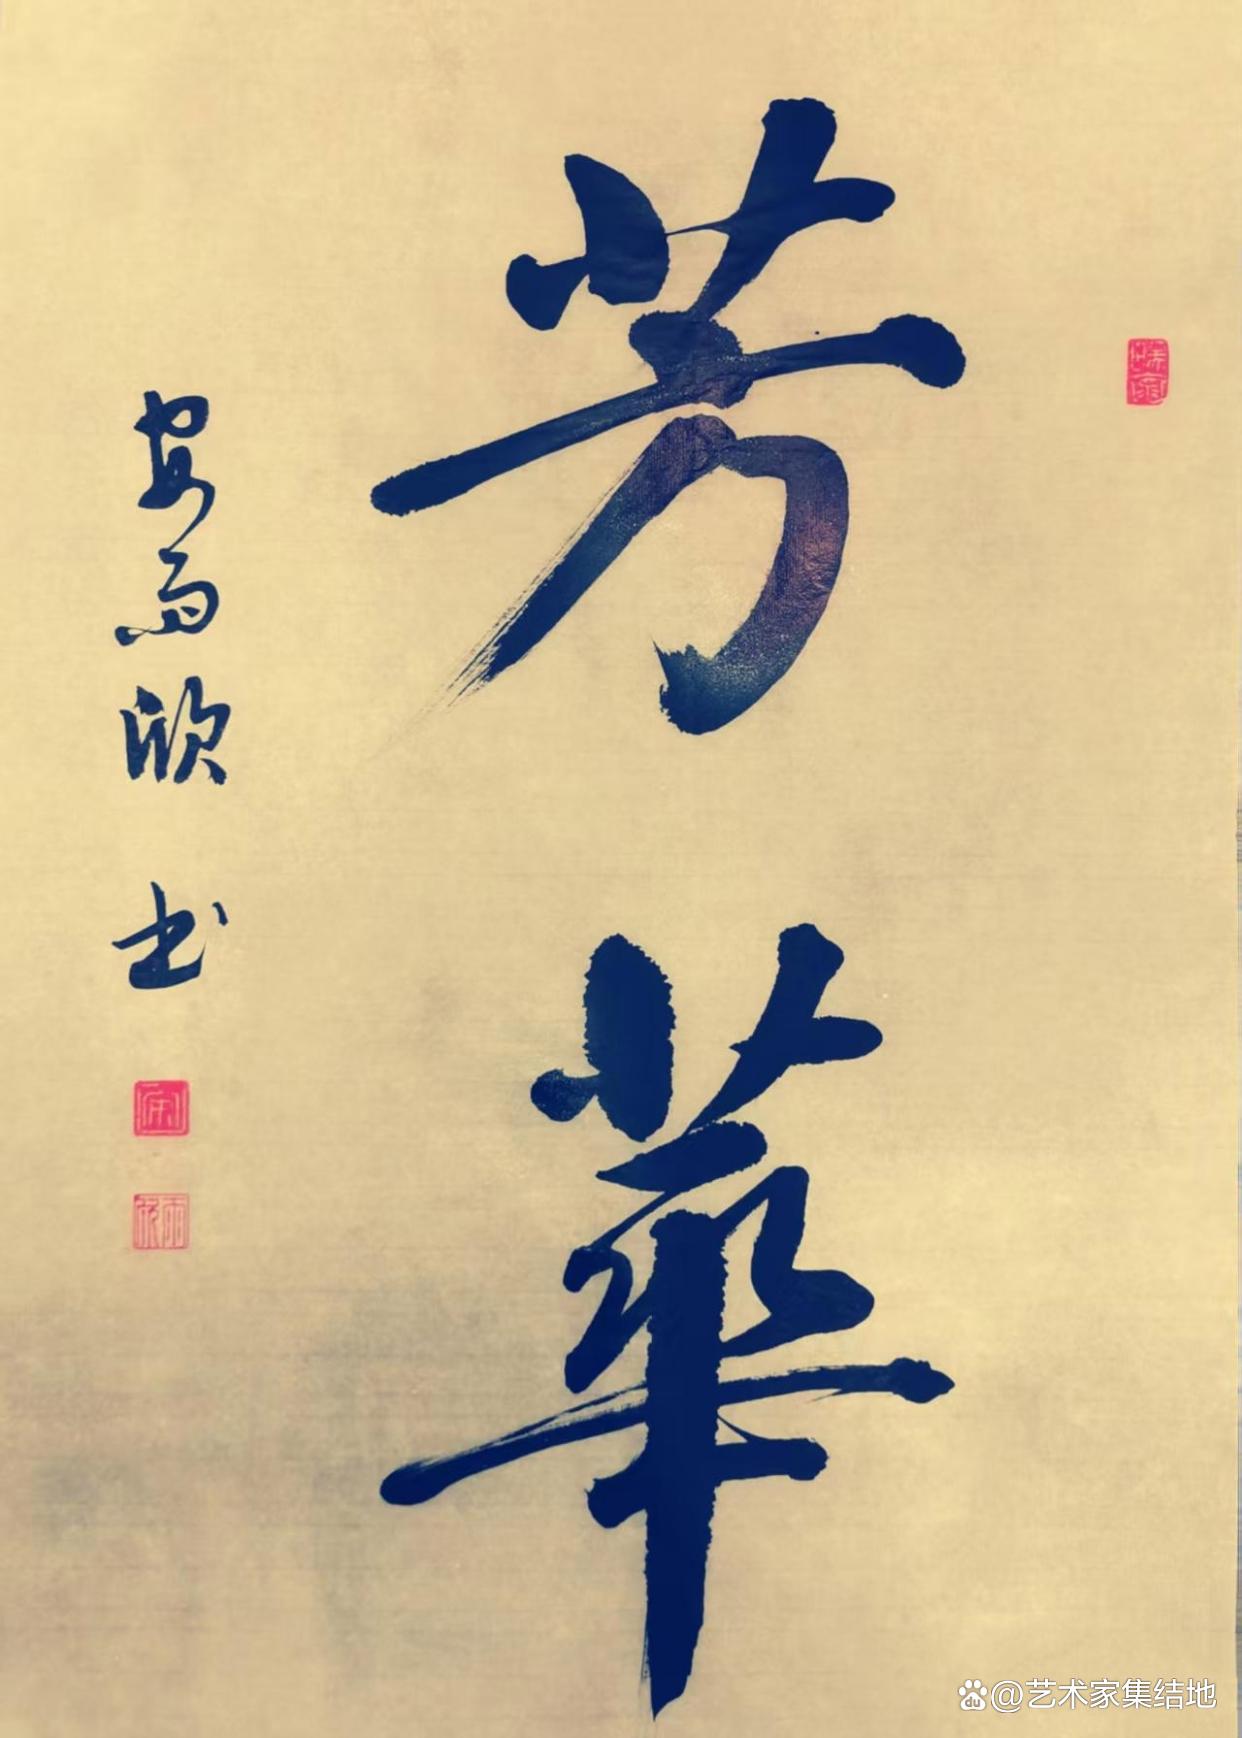 芳華
安雨欣 书
@艺术家集结地